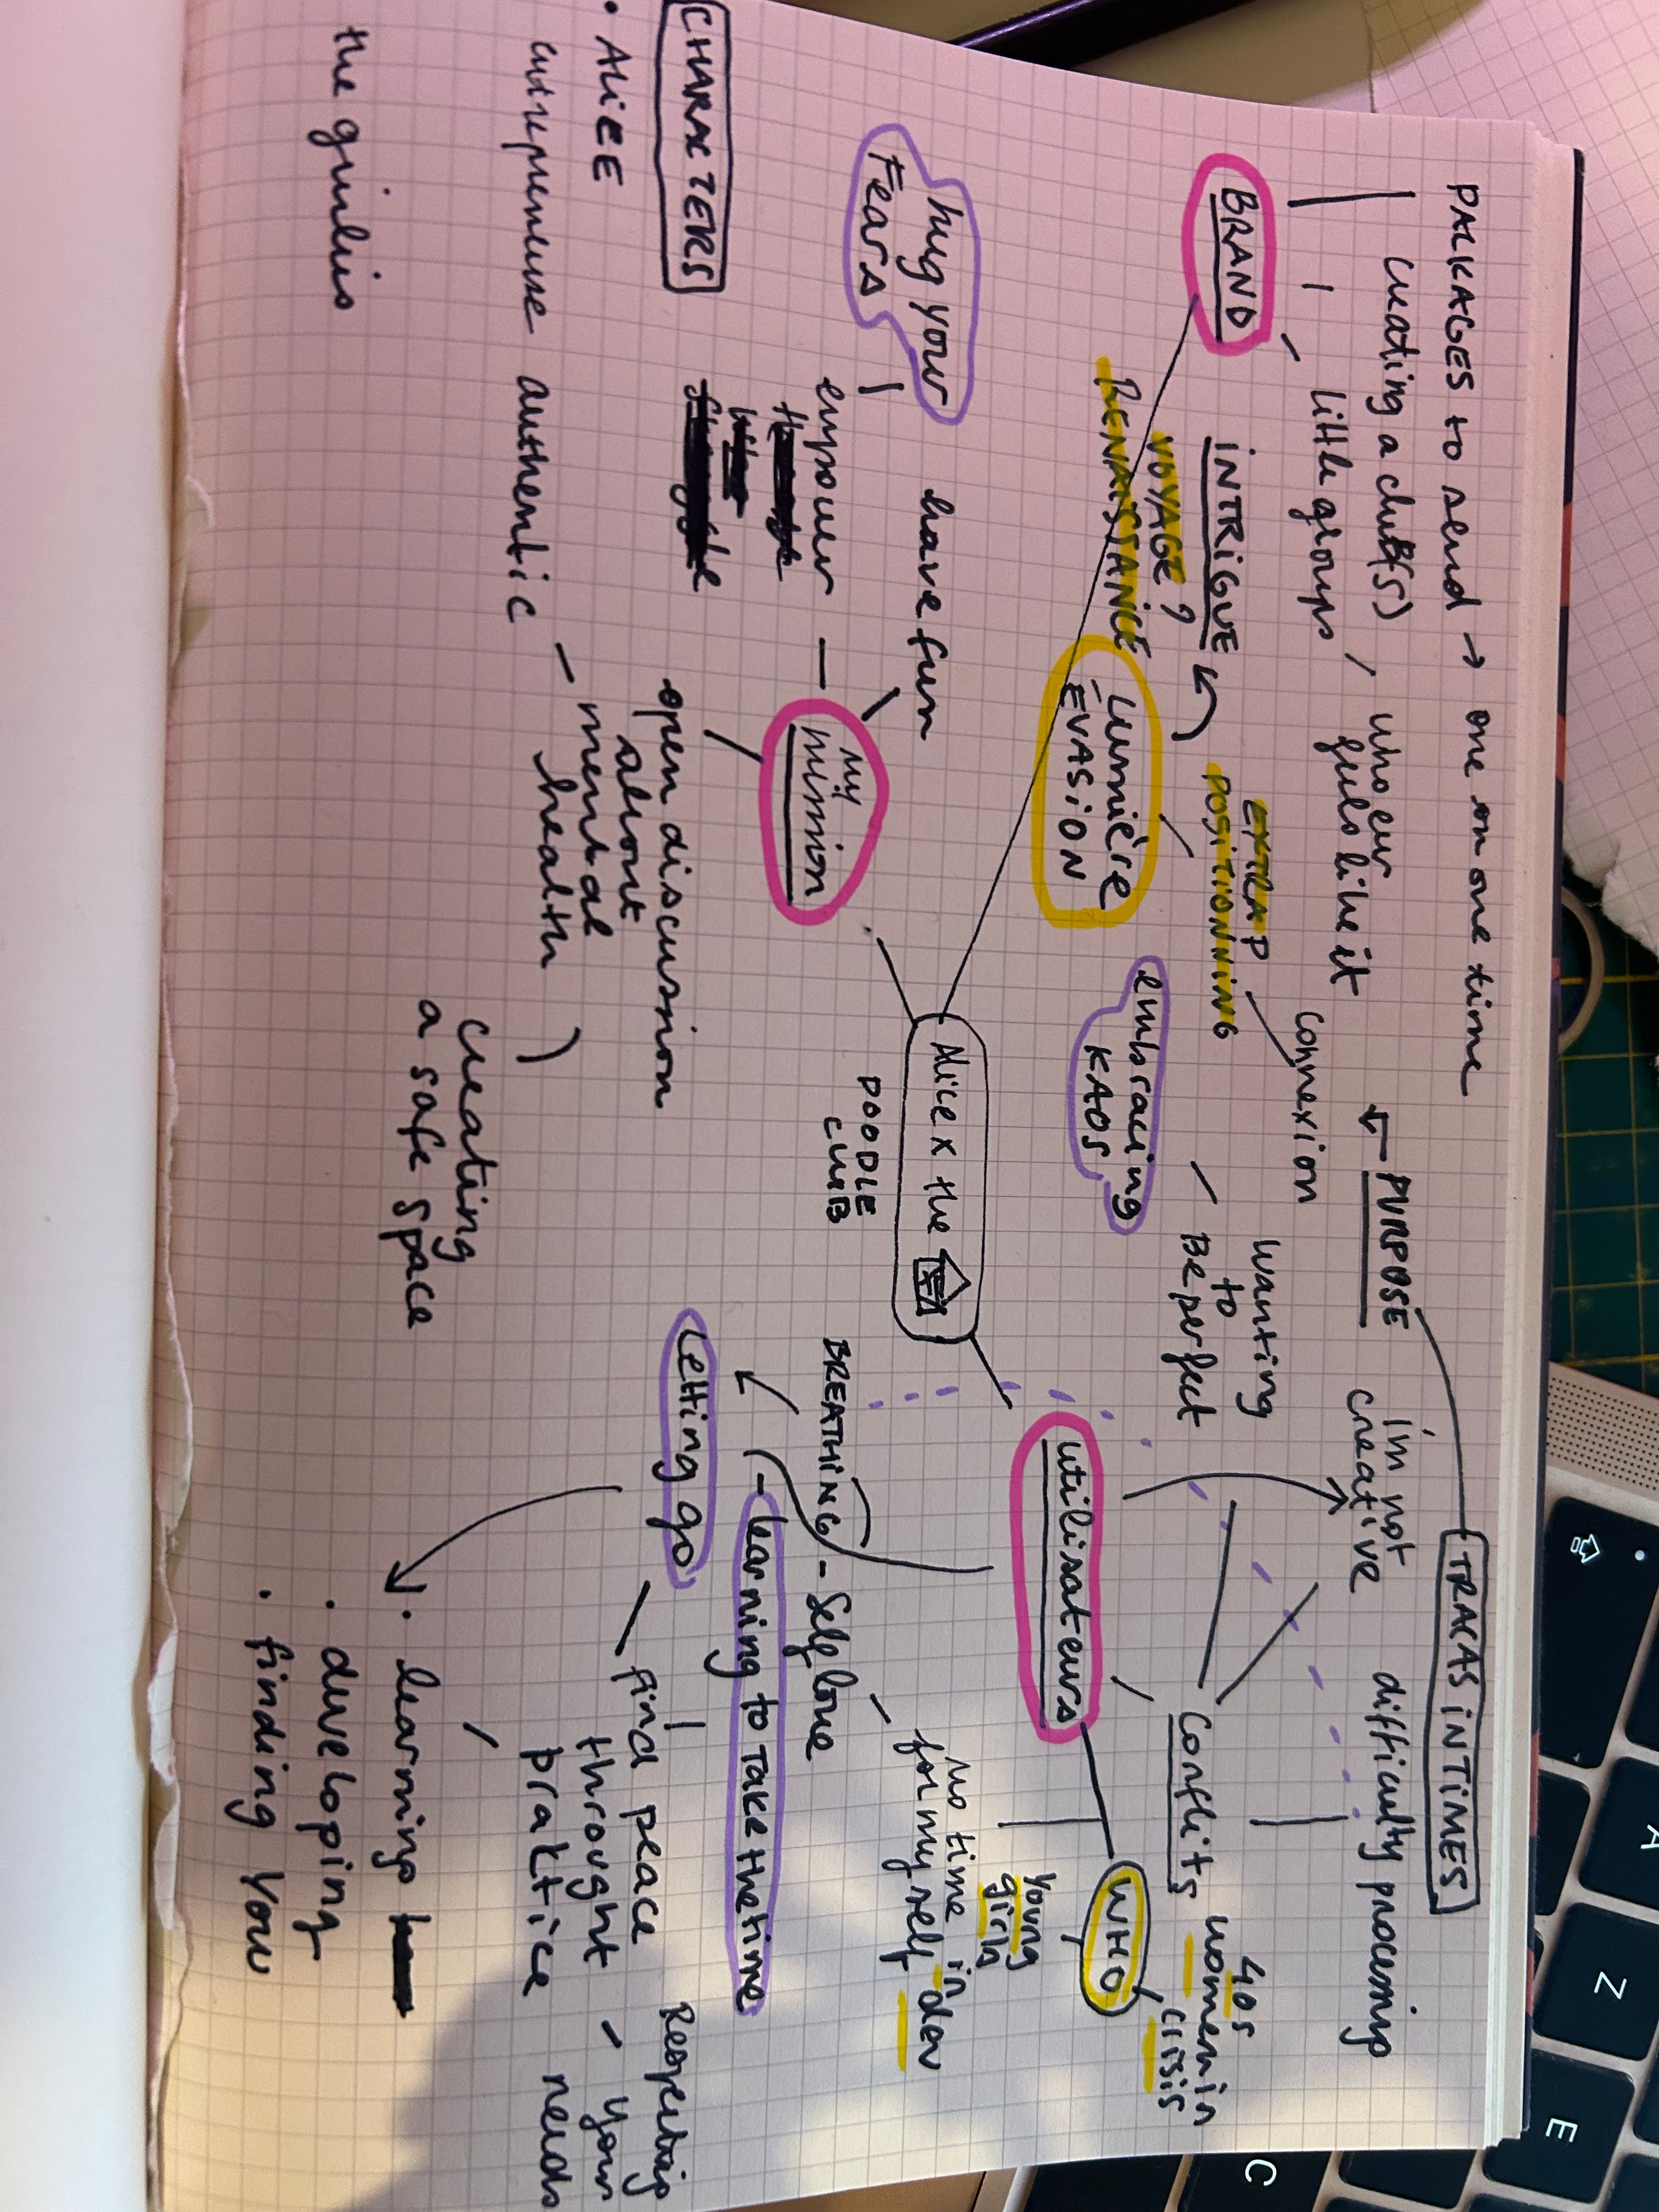 PACKAGES to send → one on one time
creating a cluB(s), whoever
feels like it
little groups
← PURPOSE
TRACAS iNTiMES
i'm not
creative
difficulty processing
connexion
BRAND
iNTRiGUE
VOYAGE?
RENAISSANCE
EXTRAP
POSiTiONNiNG
wanting
to
Be perfect
Conflits
40s
women in
crisis
Lumière
EVASiON
embracing
KAOS
utilisateurs
WHO
young
girls
in dev
no time
for my self
hug your
Fears
have fun
empower
my
mission
Alice x the
POODLE
CLUB
BREATHING - Self love
- learning to TAKE the time
Letting go
CHARACTERS
open discussion
about
- mental
health )
find peace
throught
practice
Respecting
- your
needs
• ALiCE
entrepreneuse authentic
creating
a safe space
• learning
• developing
• finding You
the